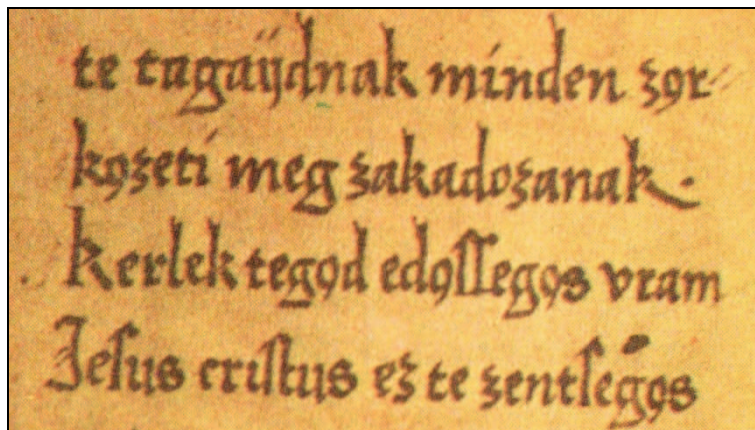 te tagaÿdnak minden zǫr″
kǫzeti meg zakadozanak.
. kerlek tegǫd edǫſſegǫs vram
Jeſus criſtus ez te zentſegǫs